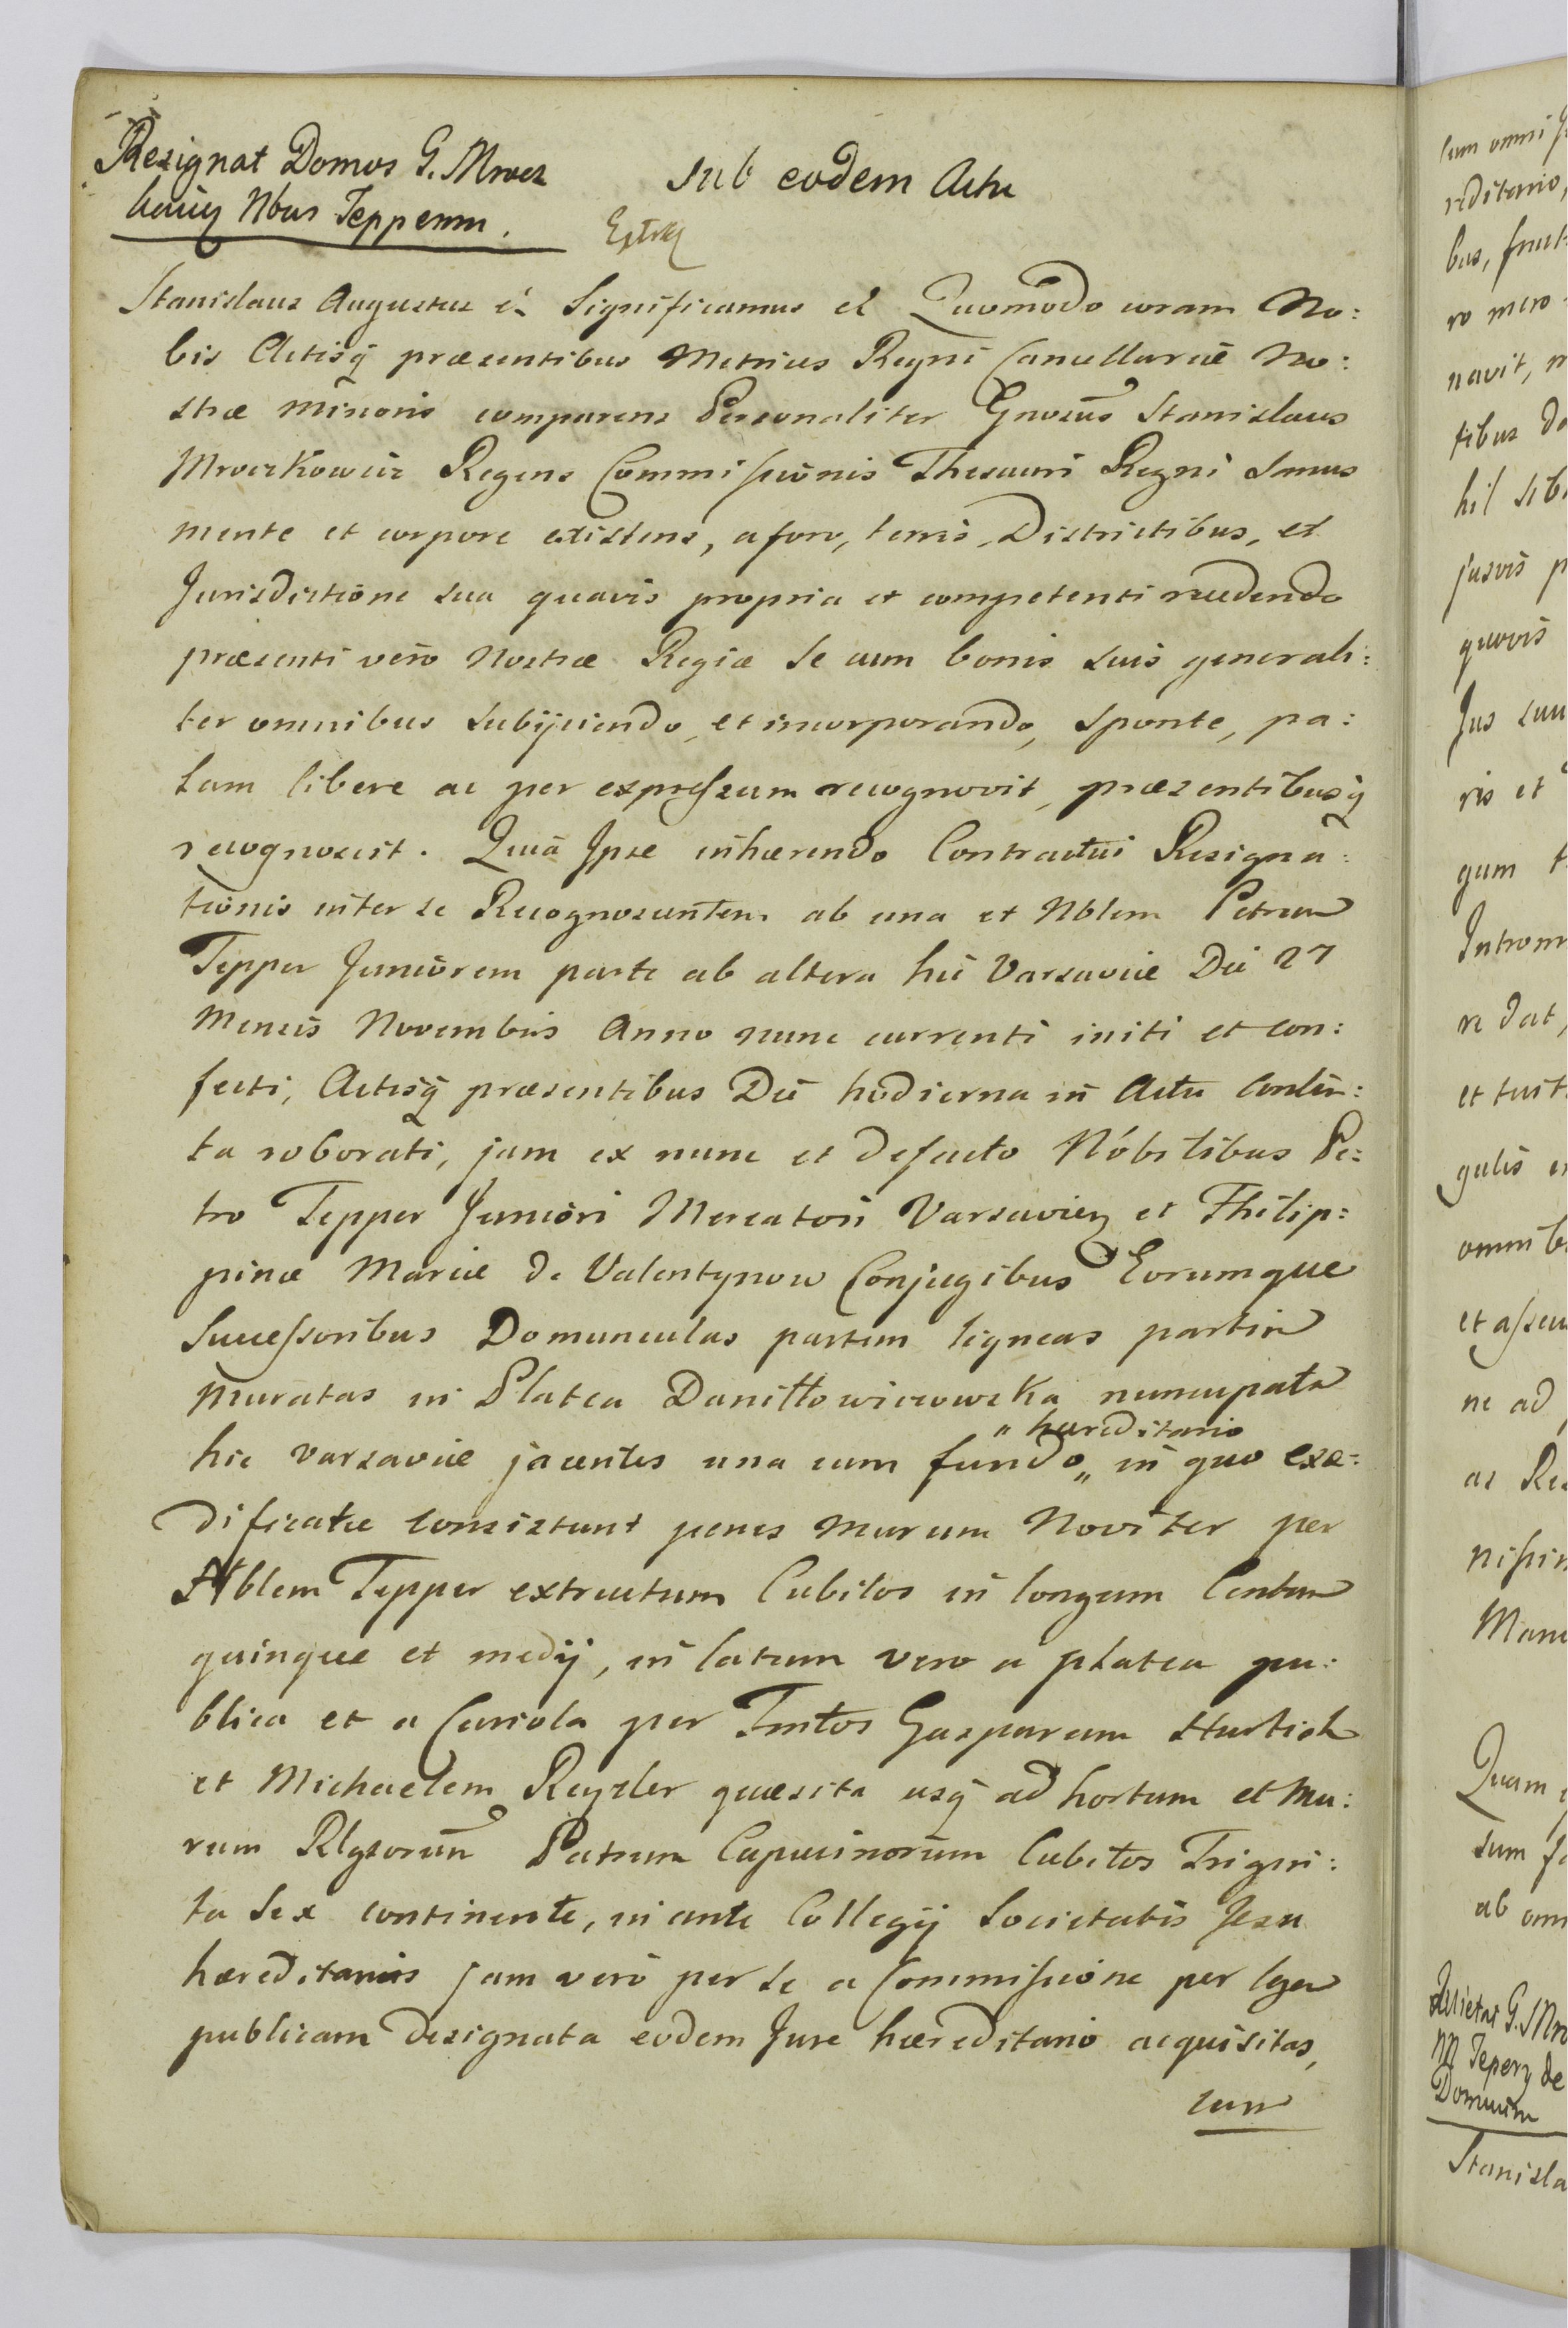 Resignat Domus G. Mrocz
kowicz Nbus Tepperm.
Sub eodem Actu
Stanislaus Augustus &. Significamus et Quomodo coram No:
bis Actisq præsentibus Metrices Regni Cancellariæ No:
stræ Minoris comparens Personaliter Gnosus Stanislaus
Mroczkowicz Regens Commissionis Thesauri Regni Sanus
mente et corpore existens, a foro, terris, Districtibus, et
Jurisdictione sua quavis propria et competenti recedendo
præsenti vero Nostræ Regiæ Se cum bonis suis generali:
ter omnibus Subijciendo, et incorporando, sponte, pa:
lam libere ac per expressum recognovit, præsentibusq
recognoscit. Quia Ipse inhærendo Contractui Resigna:
tionis inter se Recognoscentem ab una et Nblem Petrum
Tepper Juniorem parte ab altera hic Varsaviæ Die 27
Mensis Novembris Anno nunc currenti initi et con:
fecti, Actisq præsentibus Die hodierna in Actu Conten:
ta roborati, jam ex nunc et de facto Nobilibus Pe:
tro Tepper Juniori Mercatori Varsavien et Philip:
pinæ Mariæ de Valentynow Conjugibus Eorumque
Successoribus Domunculas partim ligneas partim
Muratas in Platea Daniłłowiczowska nuncupata
" hæreditario
hic Varsaviæ jacentes una cum fundo „ in quo exæ:
dificatæ consistunt penes Murum Noviter per
Nblem Tepper extructum Cubitos in longum Centum
quinque et medij, in latum vero a platea pu:
blica et a Curiola per Fmtos Gasparum Hurtich
et Michaelem Reyzler quæsita usq ad hortum et Mu:
rum Rlgsorum Patrum Capucinorum Cubitos Trigin:
ta Sex continente, in ante Collegij Societatis Jesu
hæreditarios jam vero per se a Commissione per legem
publicam designata eodem Jure hæreditario acquisitas,
cum
lum omni
reditario,
bus, fruct
ro mero
navit,
tibus
hil sibi
jusvis p
quovis
Jus suu
ris et
gum
Introm
re dat,
et tuit
gulis
omnib
et assecu
ne ad
ac Re
Manu
Quam
tum
ab om
G. Mro
Teper de
Domuum
Stanisla